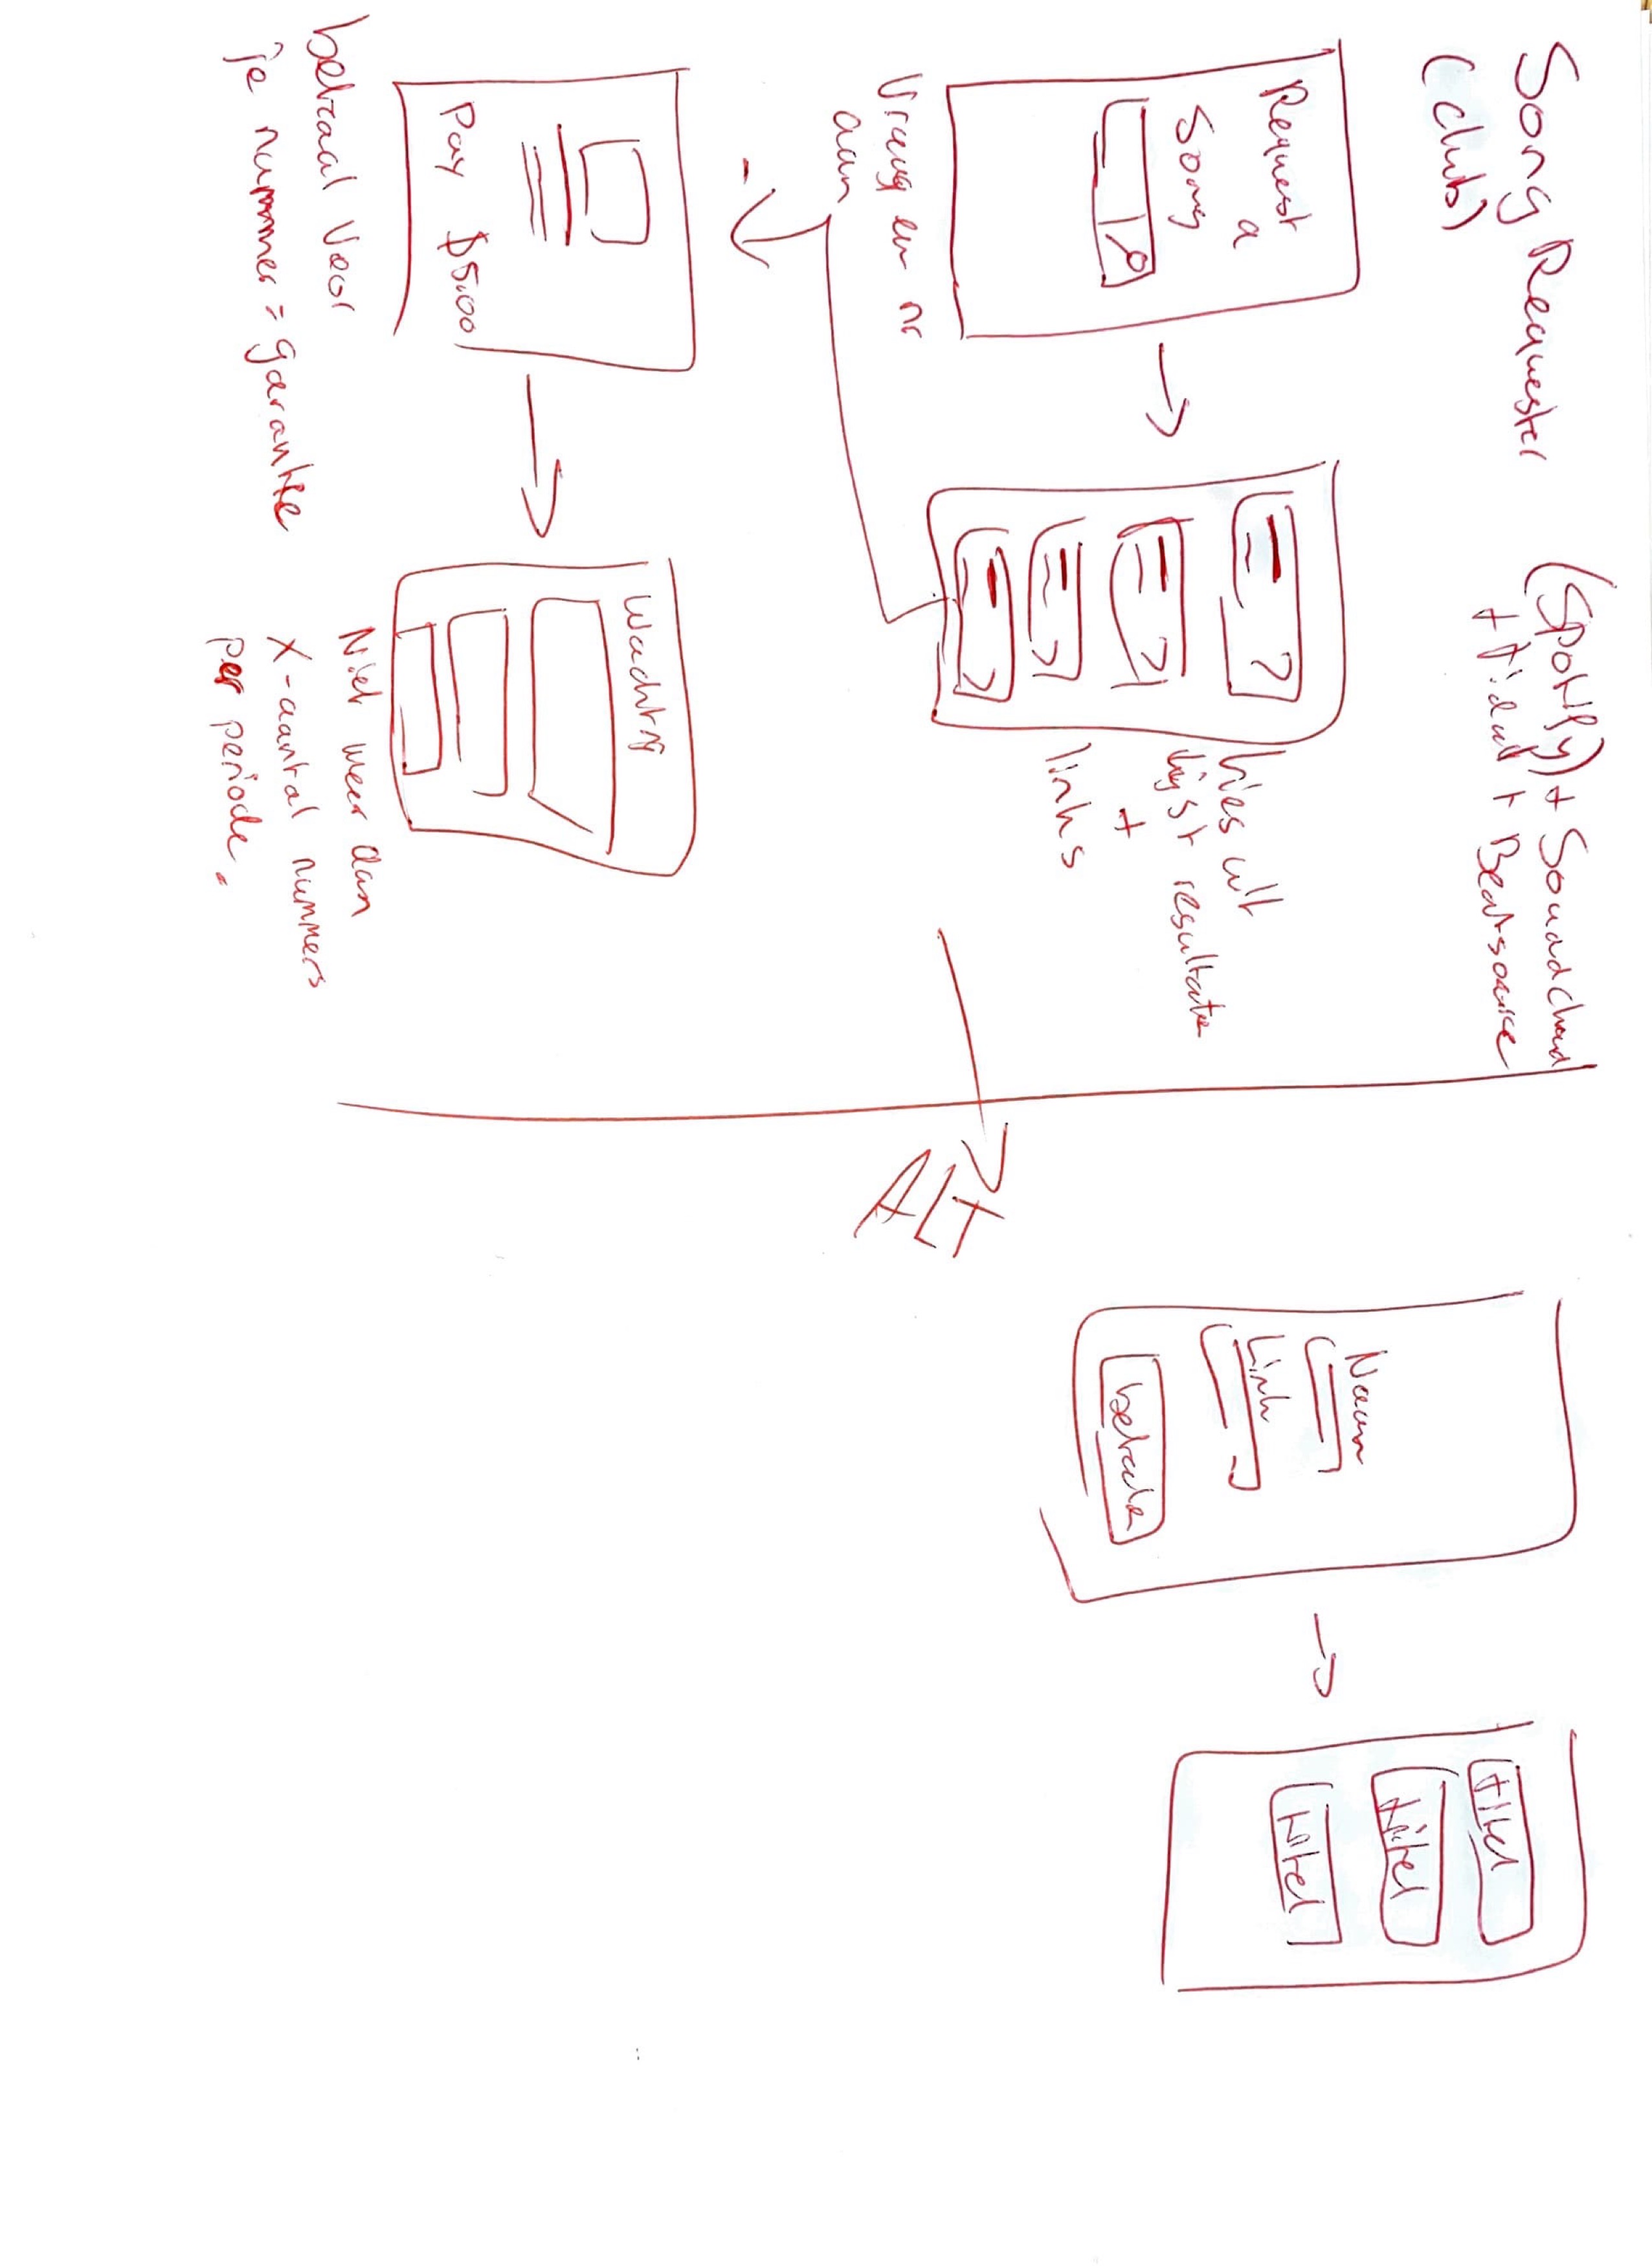 Song Requester
(club)
(Spotify) + Soundcloud
+ Tidal + Beatsource
Request
a
Song
Vraag en nr
aan
kies uit
lijst resultate
+
links
Pay $5.00
betaal voor
je nummer = garantie
Wachtrij
Niet meer dan
X-aantal nummers
per periode.
ALT
Naam
Link
betale
titel
titel
titel